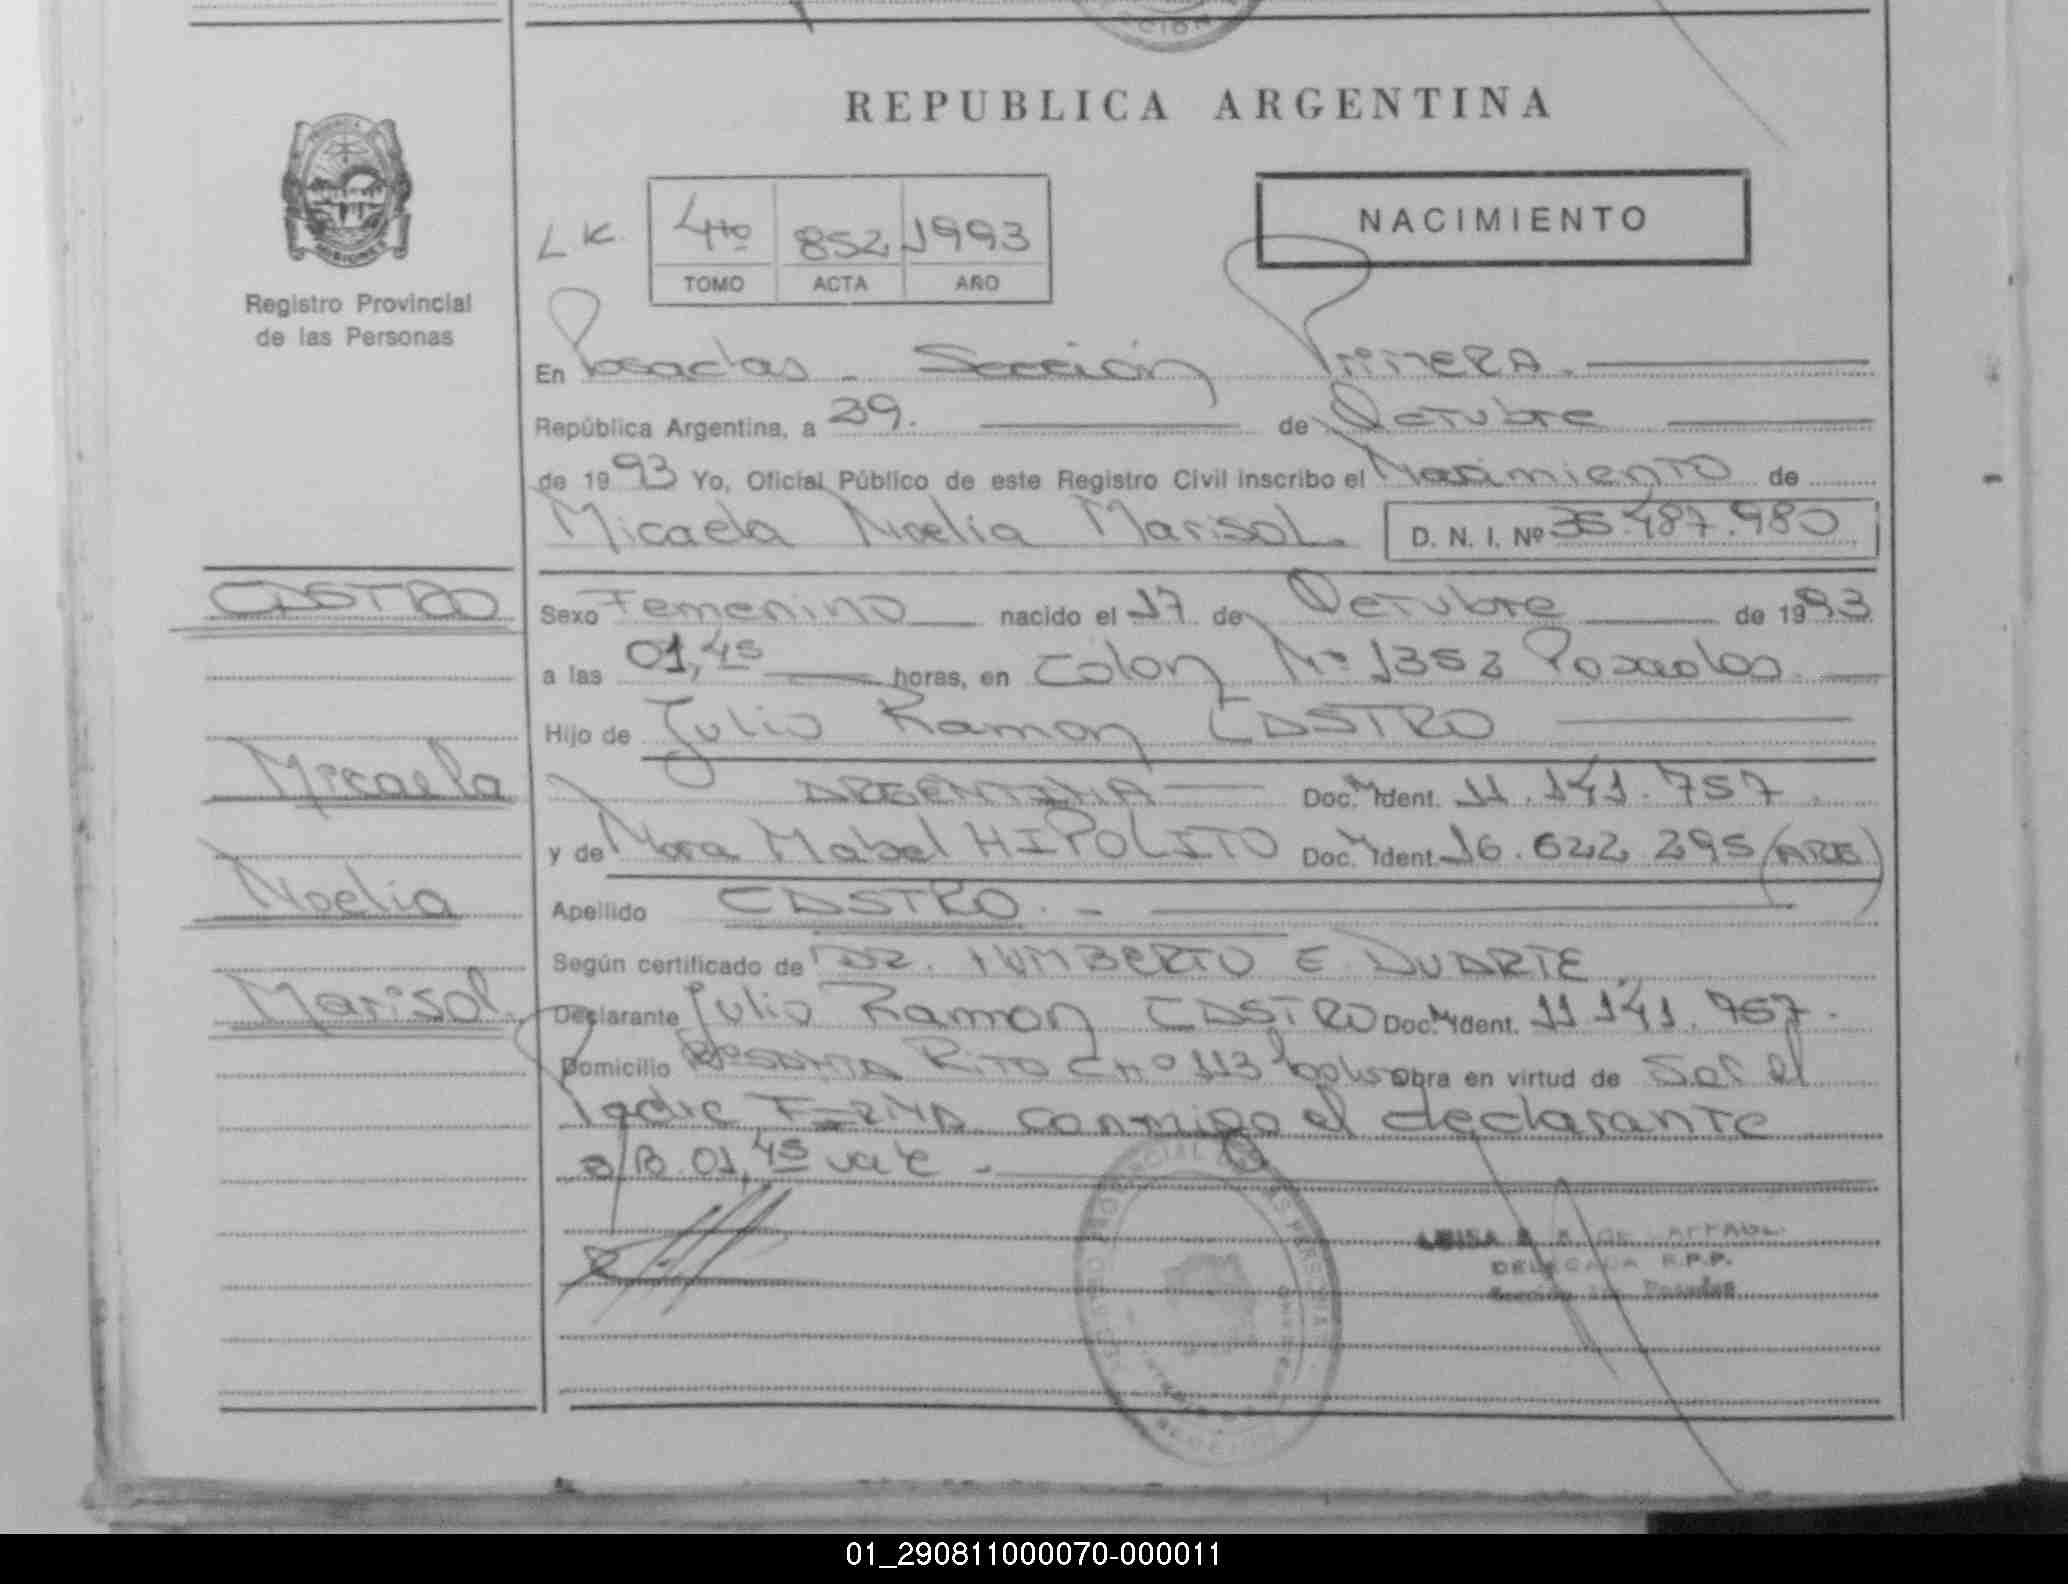 REPUBLICA ARGENTINA
NACIMIENTO
LK.
4to 852 1993
TOMO ACTA AÑO
Registro Provincial
de las Personas
En Posadas - Sección Primera.
República Argentina, a 29. de Octubre
de 1993 Yo, Oficial Público de este Registro Civil inscribo el Nacimiento de
Micaela Noelia Marisol. D. N. I. Nº 35.487.980
CASTRO
Sexo Femenino nacido el 17 de Octubre de 1993
a las 01,45 horas, en Colon Nº 1352 Posadas.
Hijo de Julio Ramon CASTRO
Micaela
ARGENTINA Doc. Ident. 11.141.757
y de Mabel HIPOLITO Doc. Ident. 16.622.295 (ARG)
Noelia
Apellido CASTRO. -
Según certificado de DR. HUMBERTO E DUARTE.
Marisol.
Declarante Julio Ramon CASTRO Doc. Ident. 11.141.757.
Domicilio Bº SANTA RITA C nº 113 obra en virtud de Ser el
Padre FIRMA conmigo el declarante
01,45 vale -
DELEGADA R.P.P.
Sección 1ra Posadas
01_290811000070-000011